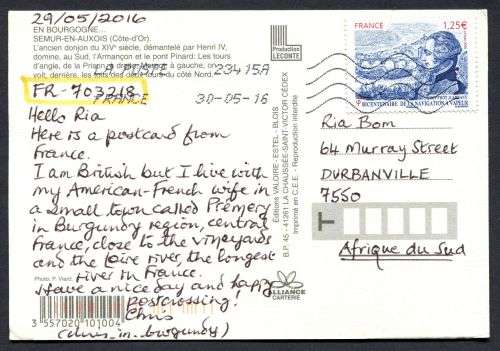 29/05/2016
EN BOURGOGNE...
SEMUR-EN-AUXOIS (Côte-d'Or).
L'ancien donjon du XIVe siècle, démantelé par Henri IV,
domine, au Sud, l'Armançon et le pont Pinard: Les tours
d'angle, de la Prison à gauche, on
voit, derrière, les toits des du côté Nord.
LA POSTE 23415A
FR-703218
FRANCE 30-05-16
Hello Ria
Here is a postcard from
France.
I am British but I live with
my American-French wife in
a small town called Prémery
in Burgundy region, central
France, close to the vineyards
and the Loire river, the longest
river in France.
Have a nice day and happy
postcrossing!
Chris
(chris_in_burgundy)
Photo: P. Viard
3 557020 101004
Production
LECONTE
Editions VALOIRE - ESTEL - BLOIS
B.P. 45 - 41261 LA CHAUSSÉE-SAINT-VICTOR CEDEX
Imprimé en C.E.E. - Reproduction interdite
ALLIANCE
CARTERIE
FRANCE 1,25€
BICENTENAIRE DE LA NAVIGATION À VAPEUR
Ria Bom
64 Murray Street
DURBANVILLE
7550
Afrique du Sud